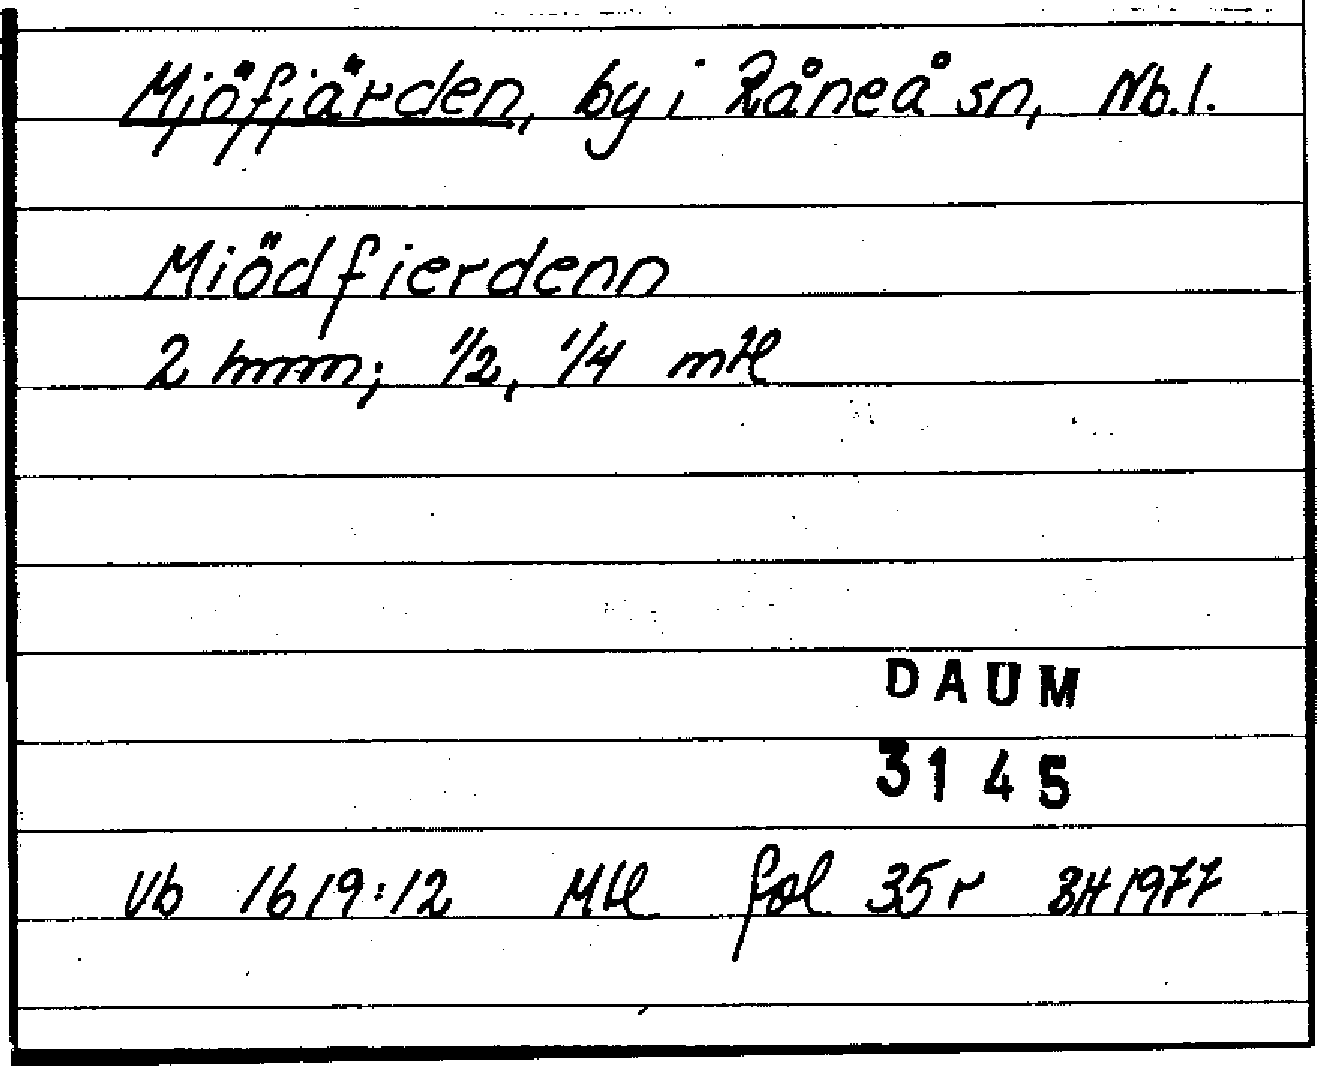 Mjöfjärden, by i Råneå sn, Nb.l.
Miödfierdenn
2 hmm; 1/2, 1/4 mtl
DAUM
3145
Vb 1619:12 Mtl fol 35r BH 1977